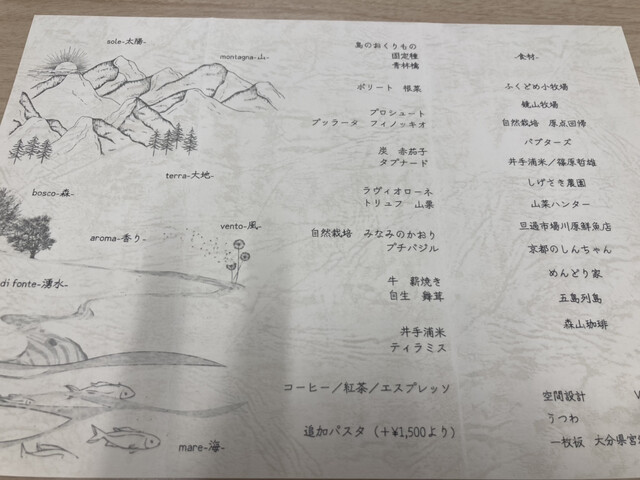 sole-太陽-
montagna-山-
terra-大地-
bosco-森-
vento-風-
aroma-香り-
di fonte-湧水-
mare-海-
島のおくりもの
固定種
青林檎
ポリート 根菜
プロシュート
ブッラータ フィノッキオ
炭 赤茄子
タプナード
ラヴィオローネ
トリュフ 山栗
自然栽培 みなみのかおり
プチバジル
牛 薪焼き
自生 舞茸
井手浦米
ティラミス
コーヒー／紅茶／エスプレッソ
追加パスタ（＋¥1,500より）
-食材-
ふくどめ小牧場
鏡山牧場
自然栽培 原点回帰
パプターズ
井手浦米／篠原哲雄
しげさき農園
山菜ハンター
旦過市場川原鮮魚店
京都のしんちゃん
めんどり家
五島列島
森山珈琲
空間設計
うつわ
一枚板 大分県